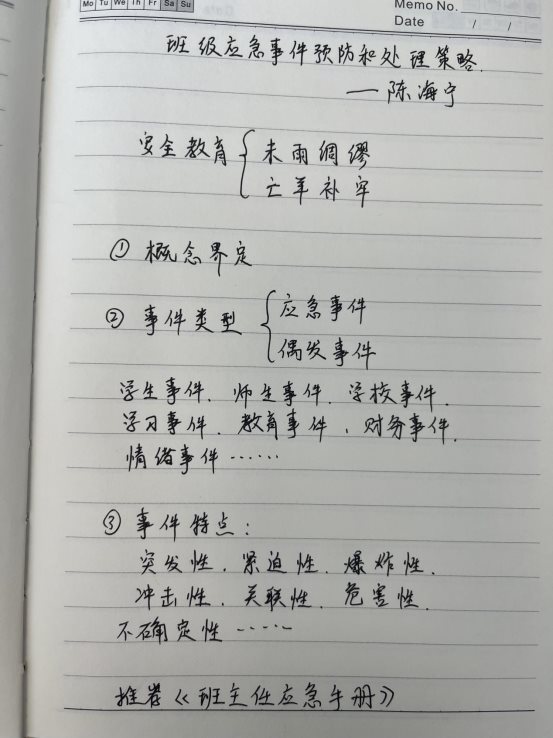 Mo Tu We Th Fr Sa Su
Memo No.
Date / /
班级应急事件预防和处理策略.
——陈海宁
安全教育 { 未雨绸缪
亡羊补牢
① 概念界定
② 事件类型 { 应急事件
偶发事件
学生事件、师生事件、学校事件、
学习事件、教育事件、财务事件、
情绪事件……
③ 事件特点：
突发性、紧迫性、爆炸性、
冲击性、关联性、危害性、
不确定性……
推荐《班主任应急手册》